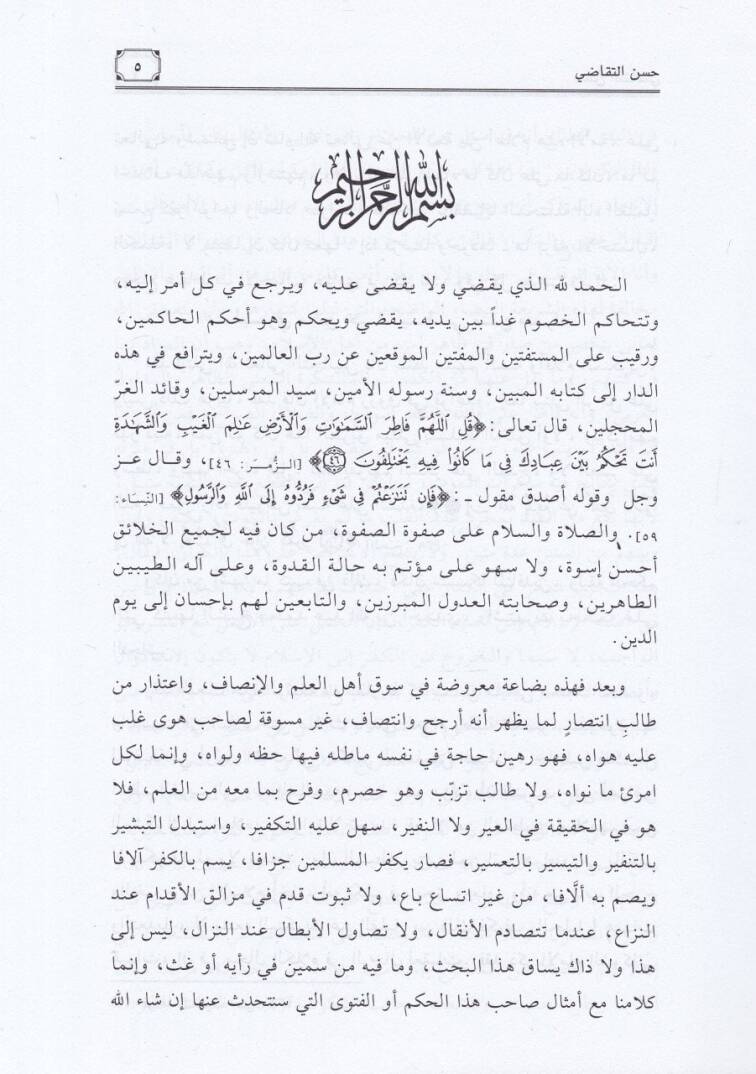 حسن التقاضي
٥
بسم الله الرحمن الرحيم
الحمد لله الذي يقضي ولا يقضى عليه، ويرجع في كل أمر إليه،
وتتحاكم الخصوم غداً بين يديه، يقضي ويحكم وهو أحكم الحاكمين،
ورقيب على المستفتين والمفتين الموقعين عن رب العالمين، ويترافع في هذه
الدار إلى كتابه المبين، وسنة رسوله الأمين، سيد المرسلين، وقائد الغرّ
المحجلين، قال تعالى: ﴿قُلِ ٱللَّهُمَّ فَاطِرَ ٱلسَّمَٰوَٰتِ وَٱلْأَرْضِ عَٰلِمَ ٱلْغَيْبِ وَٱلشَّهَٰدَةِ
أَنتَ تَحْكُمُ بَيْنَ عِبَادِكَ فِي مَا كَانُوا۟ فِيهِ يَخْتَلِفُونَ ٤٦﴾ [الزُّمَر: ٤٦]، وقال عز
وجل وقوله أصدق مقول ـ: ﴿فَإِن تَنَٰزَعْتُمْ فِي شَيْءٍ فَرُدُّوهُ إِلَى ٱللَّهِ وَٱلرَّسُولِ﴾ [النِّسَاء:
٥٩]. والصلاة والسلام على صفوة الصفوة، من كان فيه لجميع الخلائق
أحسن إسوة، ولا سهو على مؤتم به حالة القدوة، وعلى آله الطيبين
الطاهرين، وصحابته العدول المبرزين، والتابعين لهم بإحسان إلى يوم
الدين.
وبعد فهذه بضاعة معروضة في سوق أهل العلم والإنصاف، واعتذار من
طالبِ انتصارٍ لما يظهر أنه أرجح وانتصاف، غير مسوقة لصاحب هوى غلب
عليه هواه، فهو رهين حاجة في نفسه ماطله فيها حظه ولواه، وإنما لكل
امرئ ما نواه، ولا طالب تزبّب وهو حصرم، وفرح بما معه من العلم، فلا
هو في الحقيقة في العير ولا النفير، سهل عليه التكفير، واستبدل التبشير
بالتنفير والتيسير بالتعسير، فصار يكفر المسلمين جزافا، يسم بالكفر آلافا
ويصم به ألَّافا، من غير اتساع باع، ولا ثبوت قدم في مزالق الأقدام عند
النزاع، عندما تتصادم الأنقال، ولا تصاول الأبطال عند النزال، ليس إلى
هذا ولا ذاك يساق هذا البحث، وما فيه من سمين في رأيه أو غث، وإنما
كلامنا مع أمثال صاحب هذا الحكم أو الفتوى التي سنتحدث عنها إن شاء الله